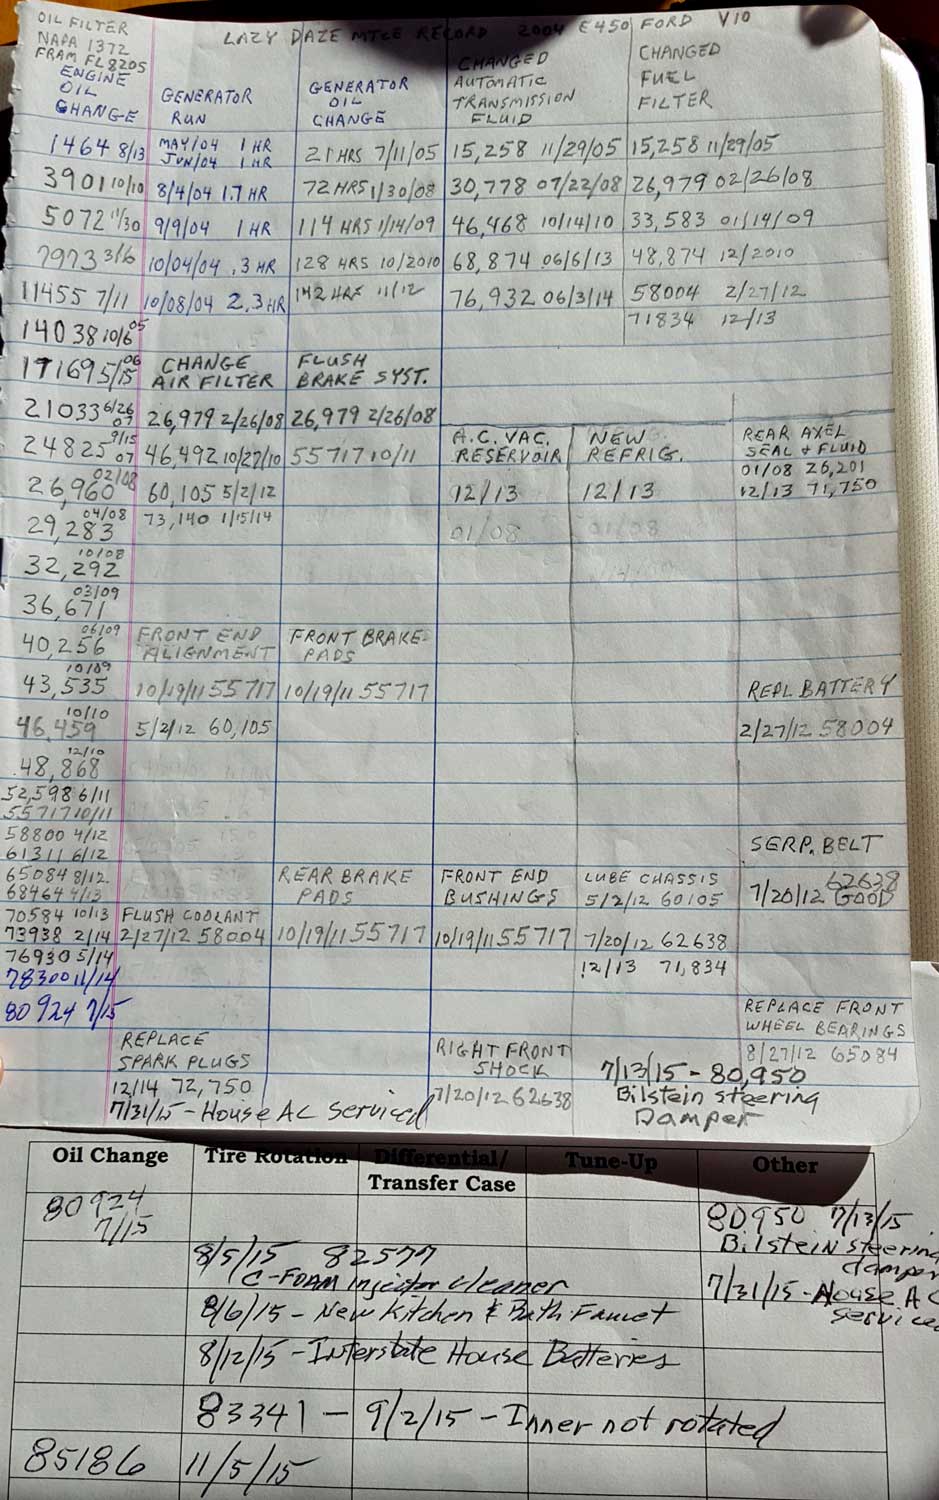 LAZY DAZE MTCE RECORD 2004 E450 FORD V10
OIL FILTER
NAPA 1372
FRAM FL820S
ENGINE
OIL
CHANGE
1464 8/13
3901 10/10
5072 11/30
7973 3/6
11455 7/11
14038 10/6 05
17169 5/15 06
21033 6/26 07
24825 9/15 07
26,960 02/08
29,283 04/08
32,292 10/08
36,671 03/09
40,256 06/09
43,535 10/09
46,459 10/10
48,868 12/10
52,598 6/11
55717 10/11
58800 4/12
61311 6/12
65084 8/12
68464 4/13
70584 10/13
73938 2/14
76930 5/14
78300 11/14
80924 7/15
GENERATOR
RUN
MAY/04 1 HR
JUN/04 1 HR
8/4/04 1.7 HR
9/9/04 1 HR
10/04/04 .3 HR
10/08/04 2.3 HR
CHANGE
AIR FILTER
26,979 2/26/08
46,492 10/27/10
60,105 5/2/12
73,140 1/15/14
FRONT END
ALIGNMENT
10/19/11 55717
5/2/12 60,105
FLUSH COOLANT
2/27/12 58004
REPLACE
SPARK PLUGS
12/14 72,750
7/31/15 - House AC serviced
GENERATOR
OIL
CHANGE
21 HRS 7/11/05
72 HRS 1/30/08
114 HRS 1/14/09
128 HRS 10/2010
142 HRS 11/12
FLUSH
BRAKE SYST.
26,979 2/26/08
55717 10/11
FRONT BRAKE
PADS
10/19/11 55717
REAR BRAKE
PADS
10/19/11 55717
CHANGED
AUTOMATIC
TRANSMISSION
FLUID
15,258 11/29/05
30,778 07/22/08
46,468 10/14/10
68,874 06/6/13
76,932 06/3/14
A.C. VAC.
RESERVOIR
12/13
01/08
FRONT END
BUSHINGS
10/19/11 55717
RIGHT FRONT
SHOCK
7/20/12 62638
CHANGED
FUEL
FILTER
15,258 11/29/05
26,979 02/26/08
33,583 01/14/09
48,874 12/2010
58004 2/27/12
71834 12/13
NEW
REFRIG.
12/13
01/08
LUBE CHASSIS
5/2/12 60105
7/20/12 62638
12/13 71,834
7/13/15 - 80,950
Bilstein steering
Damper
REAR AXEL
SEAL & FLUID
01/08 26,201
12/13 71,750
REPL BATTERY
2/27/12 58004
SERP. BELT
62638
7/20/12 GOOD
REPLACE FRONT
WHEEL BEARINGS
8/27/12 65084
Oil Change Tire Rotation Differential/ Tune-Up Other
Transfer Case
80924
7/15
80950 7/13/15
Bilstein steering
damper
8/5/15 82577
C-FOAM Injector cleaner
7/31/15 - House AC
serviced
8/6/15 - New Kitchen & Bath Faucet
8/12/15 - Interstate House Batteries
83341 - 9/2/15 - Inner not rotated
85186 11/5/15